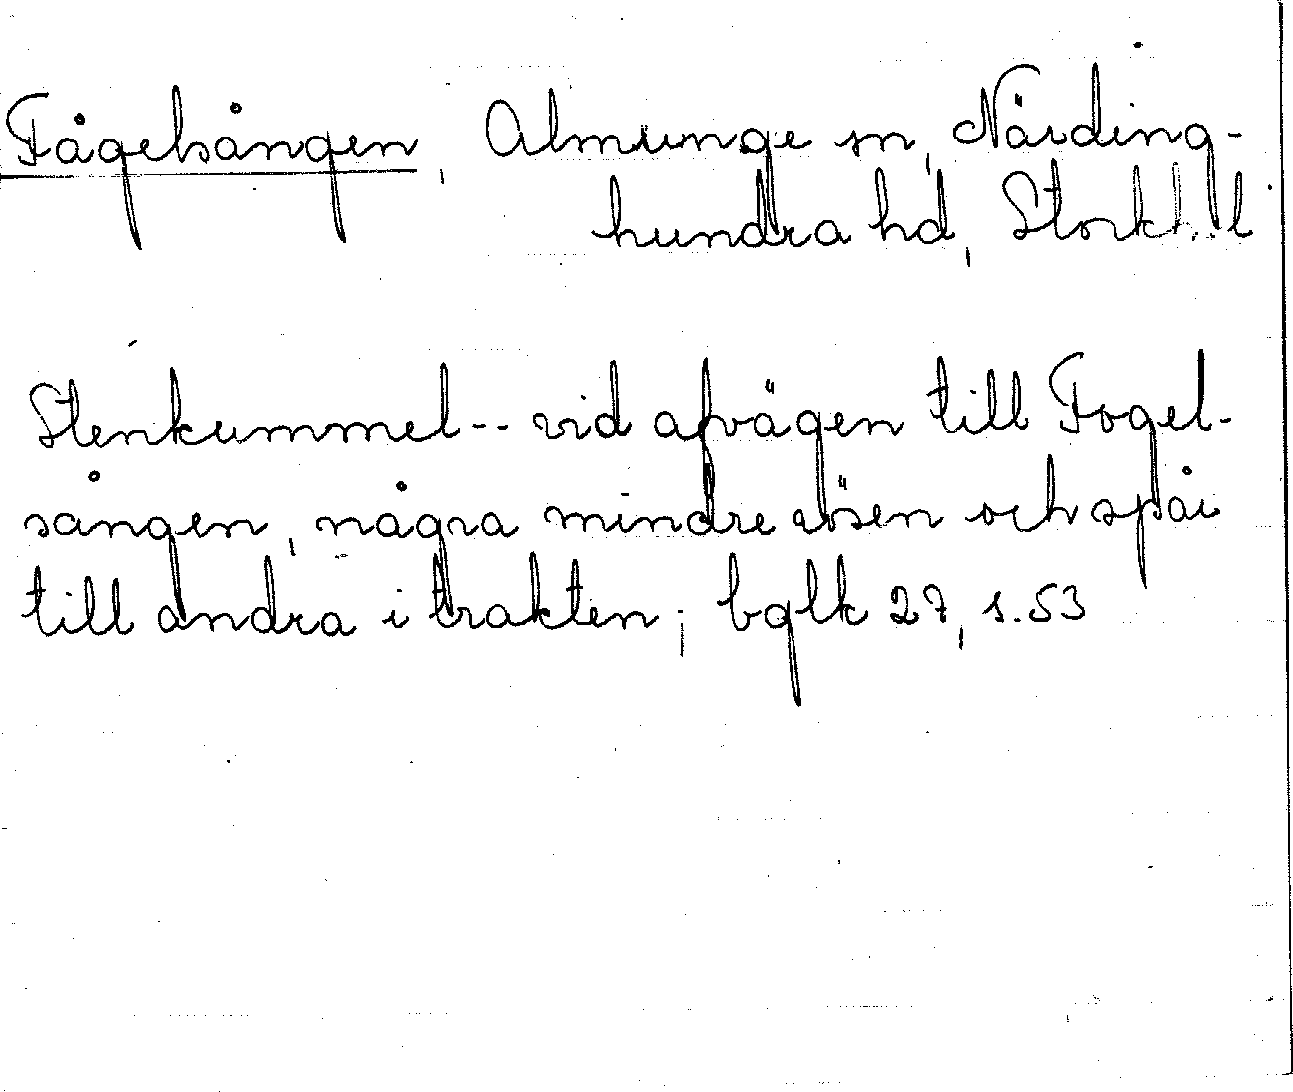 Fågelsången, Almunge sn, Närding-
hundra hd, Stockh. l
Stenkummel -- vid afvägen till Fogel-
sången, några mindre rösen och spår
till andra i trakten; bglk 27, s. 53